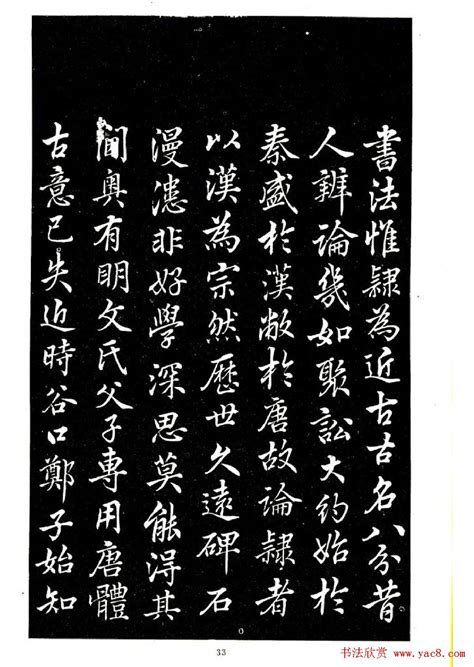 書法惟隸為近古古名八分昔
人辨論幾如聚訟大約始於
秦盛於漢敝於唐故論隸者
以漢為宗然歷世久遠碑石
漫漶非好學深思莫能得其
間奧有明文氏父子專用唐體
古意已失近時谷口鄭子始知
33
书法欣赏 www.yac8.com